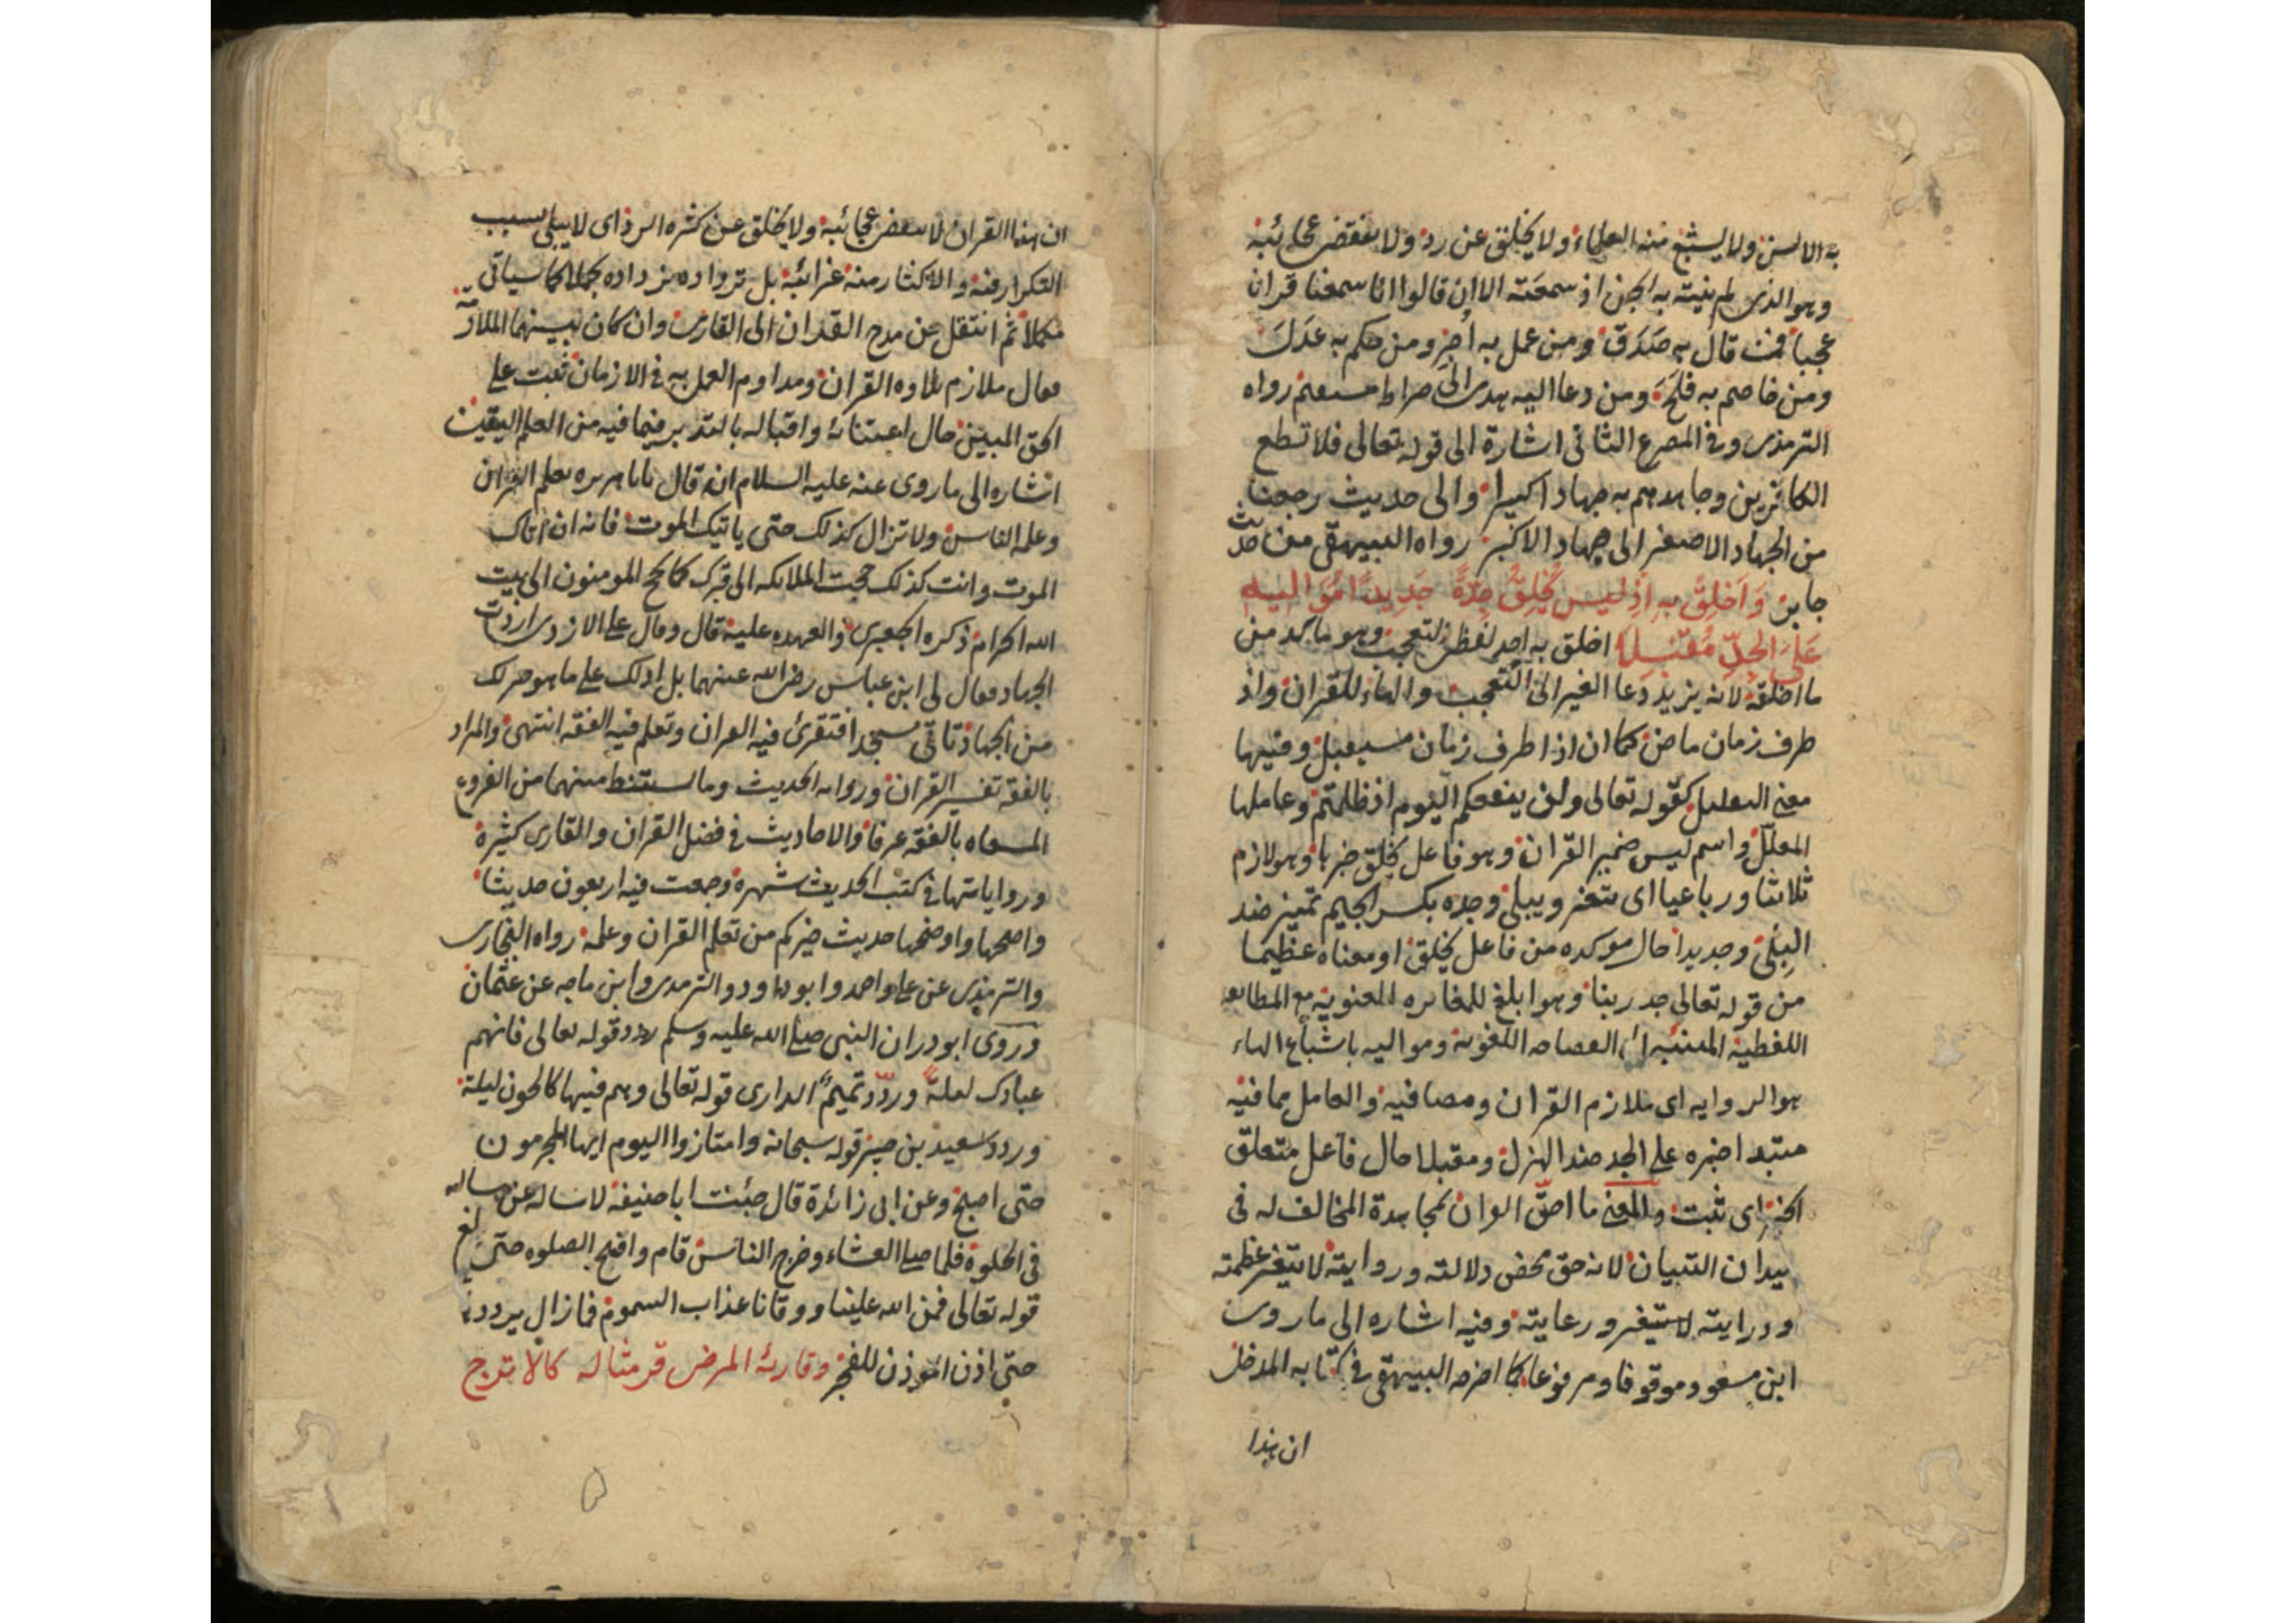 به الالسن ولا يشبع منه العلماء ولا يخلق عن رد ولا تنقضى عجائبه
وهو الذى لم ينته به الجن اذ سمعته الا ان قالوا انا سمعنا قرانا
عجبا فمن قال به صَدَقَ ومن عمل به اُجِر ومن حكم به عَدَلَ
ومن خاصم به فلَحَ ومن دعا اليه هدى الى صراط مستقيم رواه
الترمذى وفى المصرع الثانى اشارة الى قوله تعالى فلا تطع
الكافرين وجاهدهم به جهادا كبيرا والى حديث رجعنا
من الجهاد الاصغر الى جهاد الاكبر رواه البيهقى من حديث
جابر وَاَخلِقْ بهِ اِذْ ليس يُخلِقُ جِدَّةً جَدِيدًا مُوَاليهِ
عَلَى الجِدِّ مُقْبِلا اخلق به احد لفظى التعجب وهو ما بعد من
ما اخلقه لانه يزيد دعا الغير الى التعجب والهاء للقران واذ
ظرف زمان ماض كما ان اذا ظرف زمان مستقبل وفيها
معنى التعليل كقوله تعالى ولن ينفعكم اليوم اذ ظلمتم وعاملها
المعلّل واسم ليس ضمير القران وهو فاعل يخلق خبرها وهو لازم
ثلاثيا ورباعيا اى يتغير ويبلى وجده بكسر الجيم تمييز ضد
البِلَى وجديدا حال موكده من فاعل يخلق او معناه عظيما
من قوله تعالى جد ربنا وهو ابلغ للمغايره المعنويه مع المطابقه
اللفظيه المنتبه الى الفصاحه اللغويه ومواليه باشباع الهاء
هو الروايه اى ملازم القران ومصافيه والعامل بما فيه
مبتدا خبره على الجد ضد الهزل ومقبلا حال فاعل متعلق
الخبر اى ثبت والمعنى ما احقّ القران بمجاهدة المخالف له فى
ميدان التبيان لانه حق محض دلالته وروايته لا يتغير عظمته
ودرايته لا يتغير ورعايته وفيه اشاره الى ما روى
ابن مسعود موقوفا ومرفوعا كما اخرجه البيهقى فى كتابه المدخل
ان هذا
ان هذا القران لا تنقضى عجائبه ولا يخلق عن كثره الرد اى لا يبلى بسبب
التكرار فيه والاكثار منه غرائبه بل ترداده يزداده تجملا كما سياتى
مكملا ثم انتقل من مدح القران الى القارى وان كان بينهما الملازمه
فقال ملازم تلاوه القران ومداوم العمل به فى الازمان ثبت على
الحق المبين حال اعتنائه واقباله بالتدبر فيما فيه من العلم اليقين
اشاره الى ما روى عنه عليه السلام انه قال يابا هريره تعلم القران
وعلمه الناس ولا تزال كذلك حتى ياتيك الموت فانه ان اتاك
الموت وانت كذلك حجت الملائكه الى قبرك كما يحج المومنون الى بيت
الله الحرام ذكره الجعبرى والعهده عليه قال وقال على الازدى اردت
الجهاد فقال لى ابن عباس رضى الله عنهما بل ادلك على ما هو خير لك
من الجهاد تاتى مسجدا فتقرئ فيه القران وتعلم فيه الفقه انتهى والمراد
بالفقه تفسير القران وروايه الحديث وما يستنبط منهما من الفروع
المسماه بالفقه عرفا والاحاديث فى فضل القران والقارى كثيرة
ورواياتها فى كتب الحديث شهيرة وجمعت فيه اربعون حديثا
واصحها واوضحها حديث خيركم من تعلم القران وعلمه رواه البخارى
والترمذى عن على واحمد وابو داود والترمذى وابن ماجه عن عثمان
وروى ابو ذر ان النبى صلى الله عليه وسلم ردد قوله تعالى فانهم
عبادك ليلة وردّد تميمٌ الدارى قوله تعالى وهم فيها كالحون ليلة
وردد سعيد بن جبير قوله سبحانه وامتازوا اليوم ايها المجرمون
حتى اصبح وعن ابى زائدة قال جئت ابا حنيفة لاساله عن مساله
فى الخلوة فلما صلى العشاء وخرج الناس قام وافتح الصلوه حتى بلغ
قوله تعالى فمن الله علينا ووقانا عذاب السموم فما زال يرددها
حتى اذن الموذن للفجر وقارئه المرضى قر مثاله كالاترج